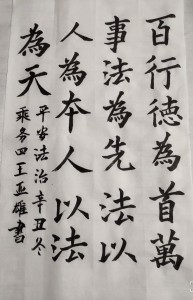 百行德為首萬
事法為先法以
人為本人以法
為天
平安法治辛丑冬
乘务四王亚雄書